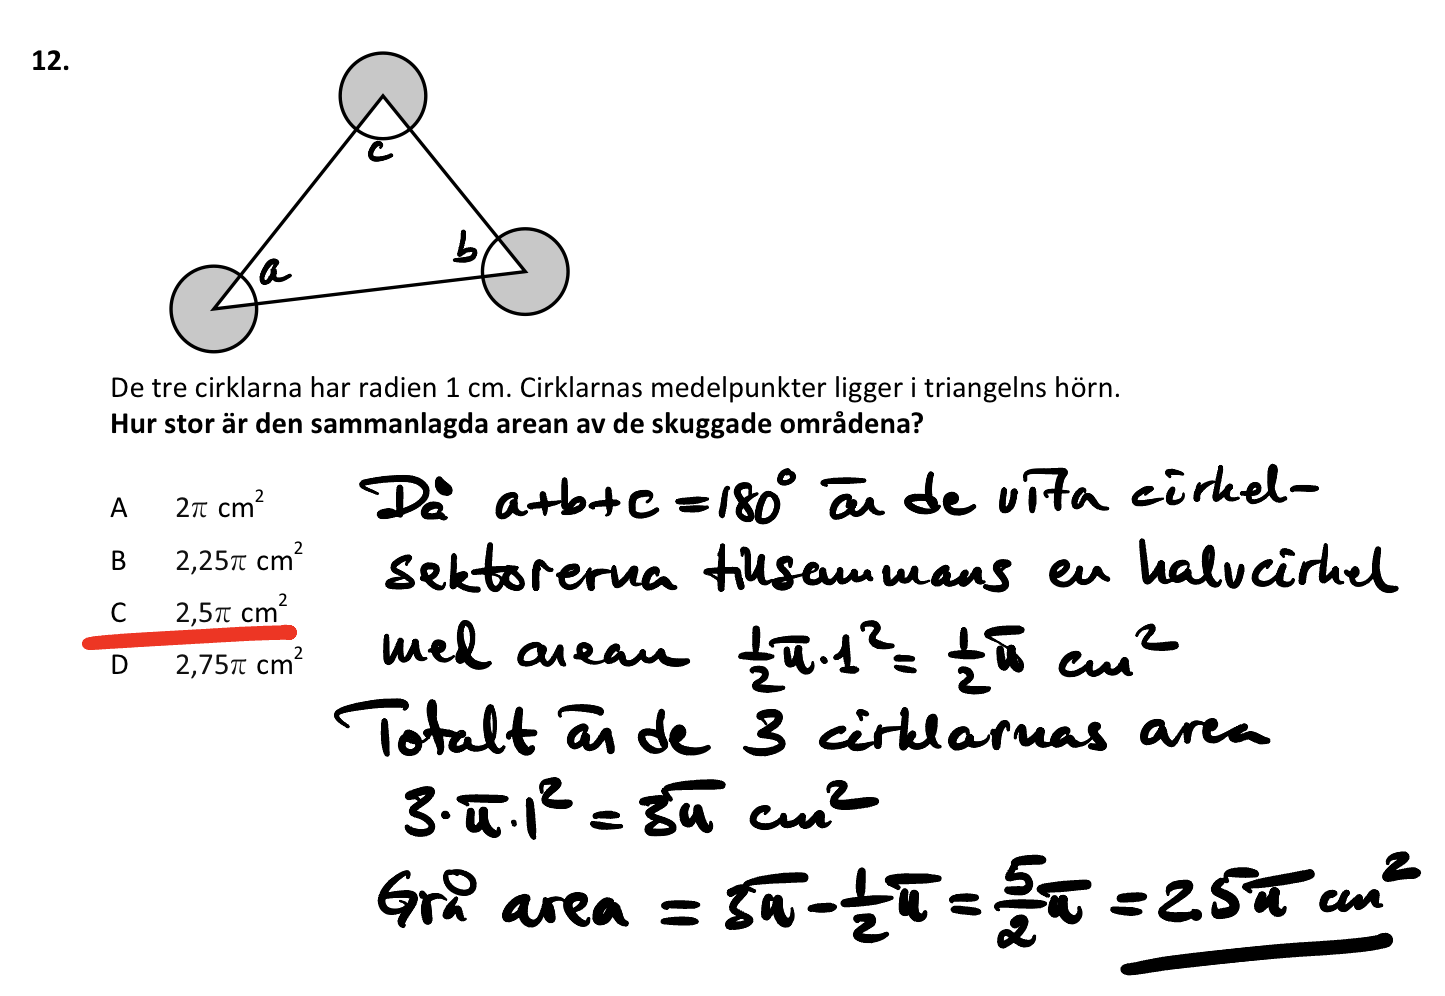 12.
c
b
a
De tre cirklarna har radien 1 cm. Cirklarnas medelpunkter ligger i triangelns hörn.
Hur stor är den sammanlagda arean av de skuggade områdena?
A 2π cm²
B 2,25π cm²
C 2,5π cm²
D 2,75π cm²
Då a+b+c=180° är de vita cirkel-
sektorerna tillsammans en halvcirkel
med arean 1/2 π·1² = 1/2 π cm²
Totalt är de 3 cirklarnas area
3·π·1² = 3π cm²
Grå area = 3π - 1/2 π = 5/2 π = 2.5π cm²